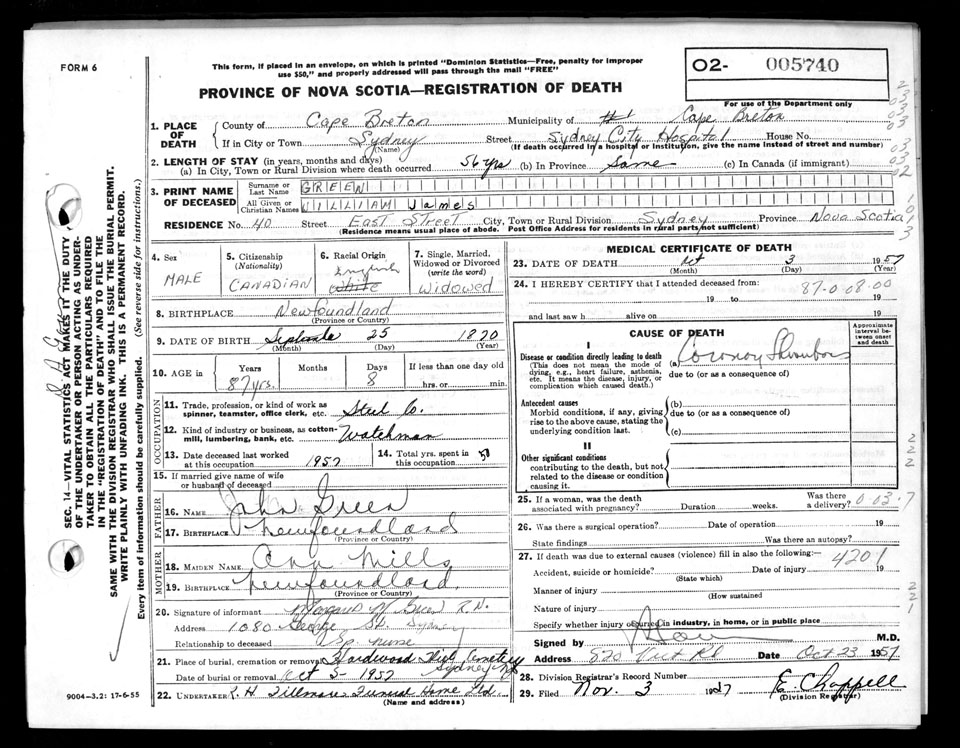 FORM 6
This form, if placed in an envelope, on which is printed "Dominion Statistics—Free, penalty for improper
use $50," and properly addressed will pass through the mail "FREE"
O2- 005740
PROVINCE OF NOVA SCOTIA—REGISTRATION OF DEATH
For use of the Department only
1. PLACE OF DEATH { County of Cape Breton Municipality of Cape Breton
If in City or Town Sydney Street Sydney City Hospital House No.
(Name) (If death occurred in a hospital or institution, give the name instead of street and number)
2. LENGTH OF STAY (in years, months and days)
(a) In City, Town or Rural Division where death occurred 56 yrs (b) In Province Same (c) In Canada (if immigrant)
3. PRINT NAME OF DECEASED { Surname or Last Name GREEN
All Given or Christian Names WILLIAM James
RESIDENCE No. 40 Street East Street City, Town or Rural Division Sydney Province Nova Scotia
(Residence means usual place of abode. Post Office Address for residents in rural parts not sufficient)
4. Sex MALE
5. Citizenship (Nationality) CANADIAN
6. Racial Origin English White
7. Single, Married, Widowed or Divorced (write the word) Widowed
8. BIRTHPLACE Newfoundland
(Province or Country)
9. DATE OF BIRTH September 25 1870
(Month) (Day) (Year)
10. AGE in Years Months Days If less than one day old
87 yrs. 8 hrs. or min.
OCCUPATION
11. Trade, profession, or kind of work as spinner, teamster, office clerk, etc. Steel Co.
12. Kind of industry or business, as cotton-mill, lumbering, bank, etc. Watchman
13. Date deceased last worked at this occupation 1957
14. Total yrs. spent in this occupation
15. If married give name of wife or husband of deceased
FATHER
16. NAME John Green
17. BIRTHPLACE Newfoundland
(Province or Country)
MOTHER
18. MAIDEN NAME Ann Mills
19. BIRTHPLACE Newfoundland
(Province or Country)
20. Signature of informant R.N.
Address 1080 George St. Sydney
Relationship to deceased nurse
21. Place of burial, cremation or removal Hardwood Hill Cemetery
Date of burial or removal Oct 5 - 1957 Sydney
22. UNDERTAKER Funeral Home Ltd.
(Name and address)
MEDICAL CERTIFICATE OF DEATH
23. DATE OF DEATH Oct 3 1957
(Month) (Day) (Year)
24. I HEREBY CERTIFY that I attended deceased from:
87-0-08-00
19 to 19
and last saw h alive on 19
CAUSE OF DEATH
Approximate interval between onset and death
I
Disease or condition directly leading to death
(This does not mean the mode of dying, e.g., heart failure, asthenia, etc. It means the disease, injury, or complication which caused death.)
(a) Coronary Thrombosis
due to (or as a consequence of)
Antecedent causes
Morbid conditions, if any, giving rise to the above cause, stating the underlying condition last.
(b)
due to (or as a consequence of)
(c)
II
Other significant conditions
contributing to the death, but not related to the disease or condition causing it.
25. If a woman, was the death associated with pregnancy? Duration weeks. Was there a delivery? 0-03-7
26. Was there a surgical operation? Date of operation 19
State findings Was there an autopsy?
27. If death was due to external causes (violence) fill in also the following:—
4201
Accident, suicide or homicide? Date of injury 19
(State which)
Manner of injury
(How sustained
Nature of injury
Specify whether injury occurred in industry, in home, or in public place
Signed by M.D.
Address Date Oct 23 1957
28. Division Registrar's Record Number
29. Filed Nov. 3 1957 E. Chappell
(Division Registrar)
9004-3.2: 17-6-55
SEC. 14—VITAL STATISTICS ACT MAKES IT THE DUTY
OF THE UNDERTAKER OR PERSON ACTING AS UNDER-
TAKER TO OBTAIN ALL THE PARTICULARS REQUIRED
IN THE "REGISTRATION OF DEATH" AND TO FILE THE
SAME WITH THE DIVISION REGISTRAR WHO SHALL ISSUE THE BURIAL PERMIT.
WRITE PLAINLY WITH UNFADING INK. THIS IS A PERMANENT RECORD.
Every item of information should be carefully supplied. (See reverse side for instructions.)